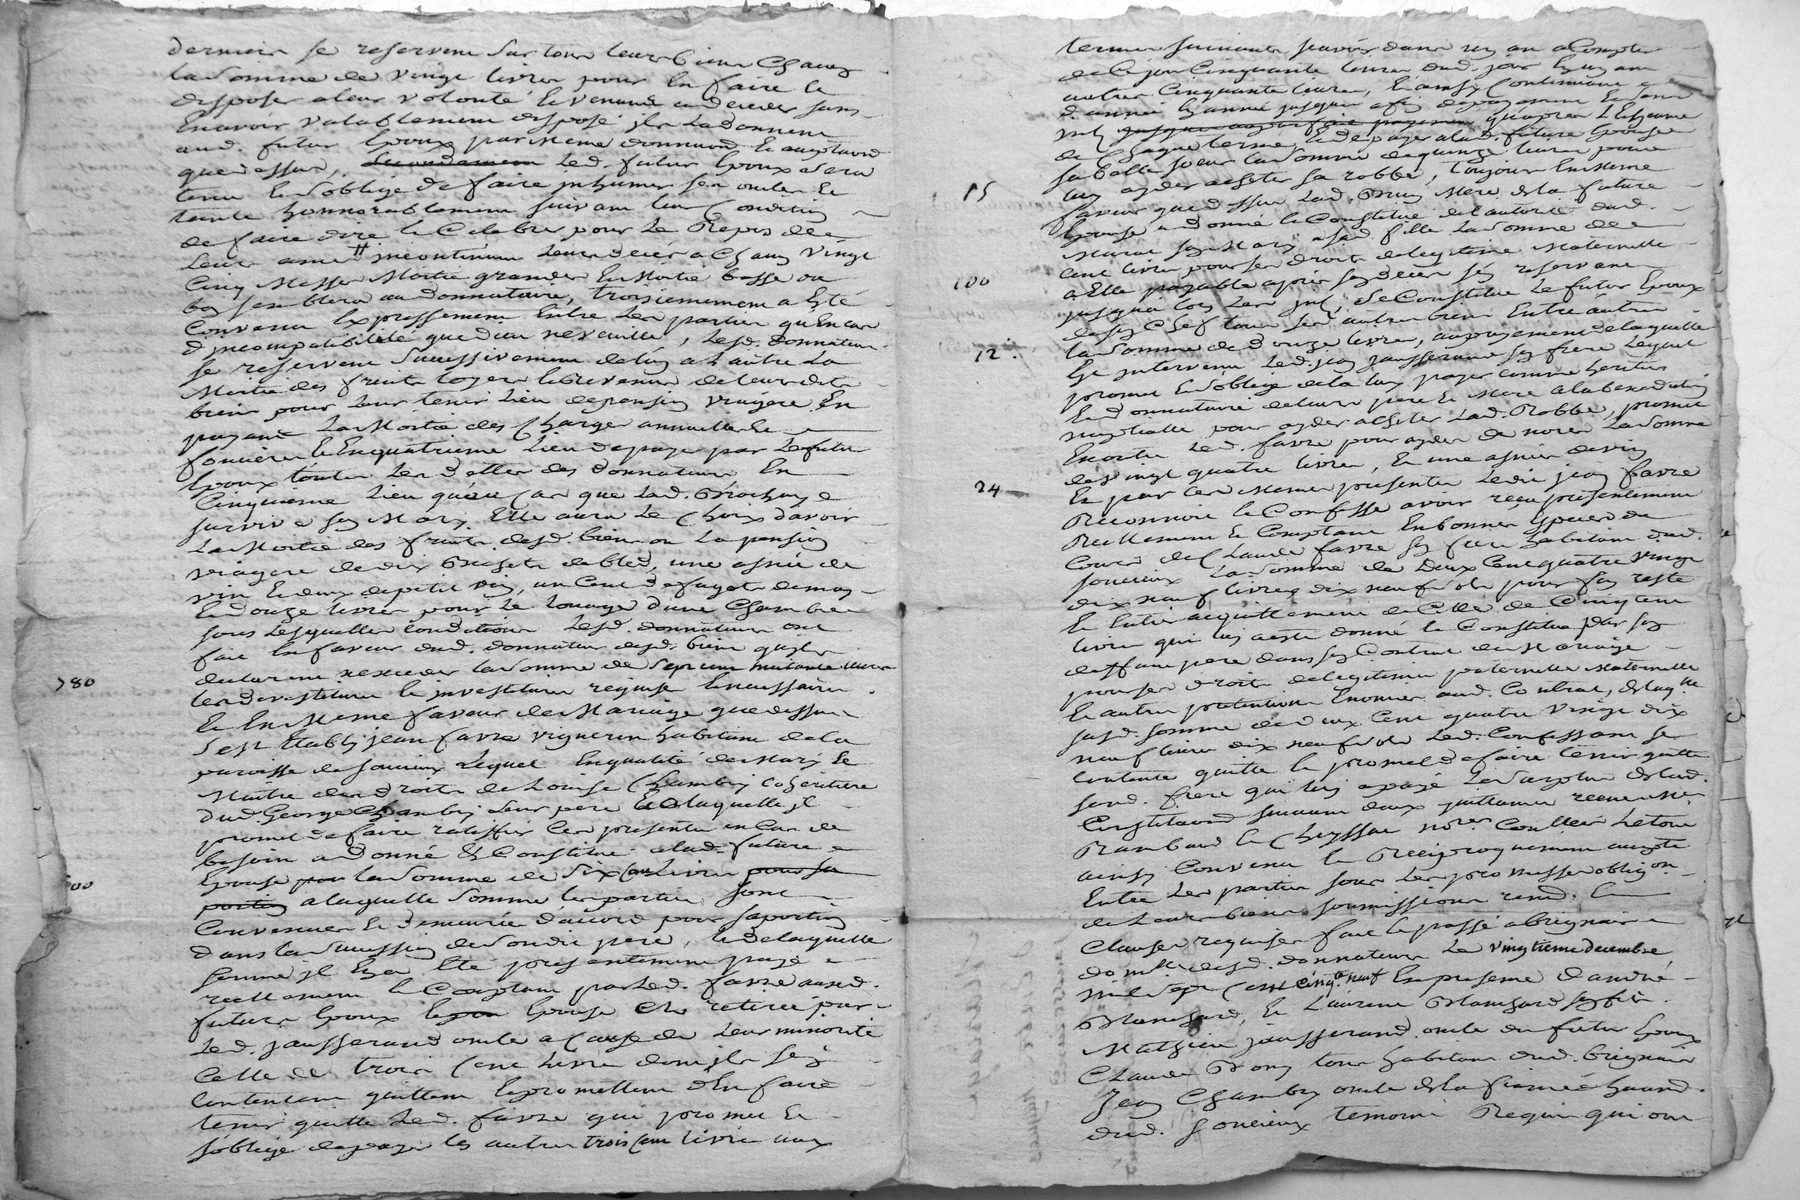 derniers se reservent sur tous leurs biens Chacun
la somme de vingt livres pour En faire Et
disposer a leur volonté Et venants a deceder sans
En avoir valablement disposé ils la donnent
aud. futur Epoux par meme donnation Et acceptation
que dessus, led. futur Epoux sera
tenu Et s'oblige de faire inhumer ses oncle Et
tante honnorablement suivant leur Condition
de faire dire Et Celebrer pour Le Repos de
leurs ames incontinent Leur deces a Chacun Vingt
Cinq Messes Moitié grandes Et Moitié basses ou
bon semblera au donnataire, troisiemement a Eté
Convenu Expressement Entre Les parties qu'En cas
d'incompatibilité que dieu ne veuille, Lesd. donnateurs
se reservent Successivement de l'un a L'autre La
Moitié des fruits loyers Et revenus de leursdits
biens pour Leur tenir Lieu de pension viagere En
payant La Moitié des Charges annuelles Et
foncieres Et En quatrieme Lieu de payer par Le futur
Epoux toutes Les dettes des donnateurs En
Cinquieme Lieu qu'au Cas que Lad. Brochay
survive son Mary Elle aura Le Choix d'avoir
La Moitié des fruits desd. biens ou La pension
viagere de dix Bichets de bled, une asnée de
vin Et deux de petit vin, un Cent de fagots
Et douze livres pour Le Louage d'une Chambre
sous Lesquelles conditions Lesd. donnateurs ont
fait En faveur dud. donnataire desd. biens qu'ils
declarent n'exceder la somme de Sept cent huitante livres
780
les devestitures Et investitures requises Et necessaires.
Et En Meme faveur de Mariage que dessus
s'est Etably jean favre vigneron habitant de la
paroisse de soucieux Lequel En qualité de Mary Et
Maitre des droits de Louise Chambry Coheritiere
dud. George Chambry Leur pere De laquelle il
promet de faire ratiffier Ces presentes en Cas de
besoin a Donné Et Constitué a lad. future
Epouse pour la somme de Six Cent Livres pour sa
00
portion a laquelle somme les parties sont
Convenues Et demeurées d'accord pour sa portion
dans la succession de son dit pere, Et de laquelle
somme il En a Eté presentement payé
reellement Et Comptant par Led. favre auxd.
futurs Epoux Et Epouse Et retirée par
Led. jausserand oncle a Cause de Leur minorité
Celle de trois Cent Livres dont ils sont
Contents quittent Et promettent d'En faire
tenir quitte Led. favre qui promet Et
s'oblige de payer les autres trois Cent livres aux
termes suivants savoir dans un an a Compter
de Ce jour Cinquante livres dud. jour En un an
autres Cinquante livres, Et ainsy Continuant
d'année En année jusques a fin de payement
qu'apres L'Echeance
de Chaque terme, Et de payer a lad. future Epouse
sa belle soeur la somme de quinze livres pour
15
luy ayder acheter sa robbe, Toujour En Meme
faveur que dessus Lad. Mere de la future
Epouse a donné Et Constitué de l'autorité dud.
son Mary a sad. fille La somme de
Cent livres pour ses droits de legitime Maternelle
100
a Elle payable apres son deces
jusqu'a lors Et se Constitue Le futur Epoux
de son Chef tous ses autres biens Entre autres
la somme de douze livres, au payement de laquelle
12.
Est intervenu Led. jean jausserand son frere Lequel
promet Et s'oblige de la luy payer comme heritier
Et donnataire de leurs pere Et Mere a la benediction
nuptialle pour ayder acheter Lad. Robbe, promet
En outre Led. favre pour ayder de noces La somme
de Vingt quatre livres, Et une asnée de vin
24
Et par Ces Memes presentes Ledit jean favre
Reconnoit Et Confesse avoir reçu presentement
Reellement Et Comptant En bonnes Especes du
Cours de Claude favre son frere habitant dud.
soucieux La somme de Deux Cent quatre Vingt
dix neuf livres dix neuf sols pour fin reste
Et Entier acquittement de Celle de Cinq Cent
livres qui luy a esté donné Et Constitué par son
deffunt pere dans son Contrat de Mariage
pour ses droits de legitime paternelle Maternelle
Et autres pretentions Enoncés aud. Contrat, de laqlle
susd. somme de deux Cent quatre Vingt dix
neuf livres dix neuf sols Led. Confessant se
Contente quitte Et promet de faire tenir quitte
sond. frere qui luy a payé Le surplus de lad.
Constitution suivant deux quittances recues Me
Rambaud Et Cheyssac nores
ainsy Convenu Et Reciproquement accepté
Entre Les parties sous Les promesses obligon
de Leurs biens soumissions rend. Et
Clauses requises fait Et passé a brignais
domlle desd. donnateurs Le vingtieme decembre
mil Sept Cent cinqte neuf En presence d'andré
Blanchard, Et Laurent Blanchard son fils
Mathieu jausserand oncle du futur Epoux
Claude Bony tous habitants dud. brignais
Jean Chambry oncle de la fiancée habitant
dud. soucieux temoins Requis qui ont